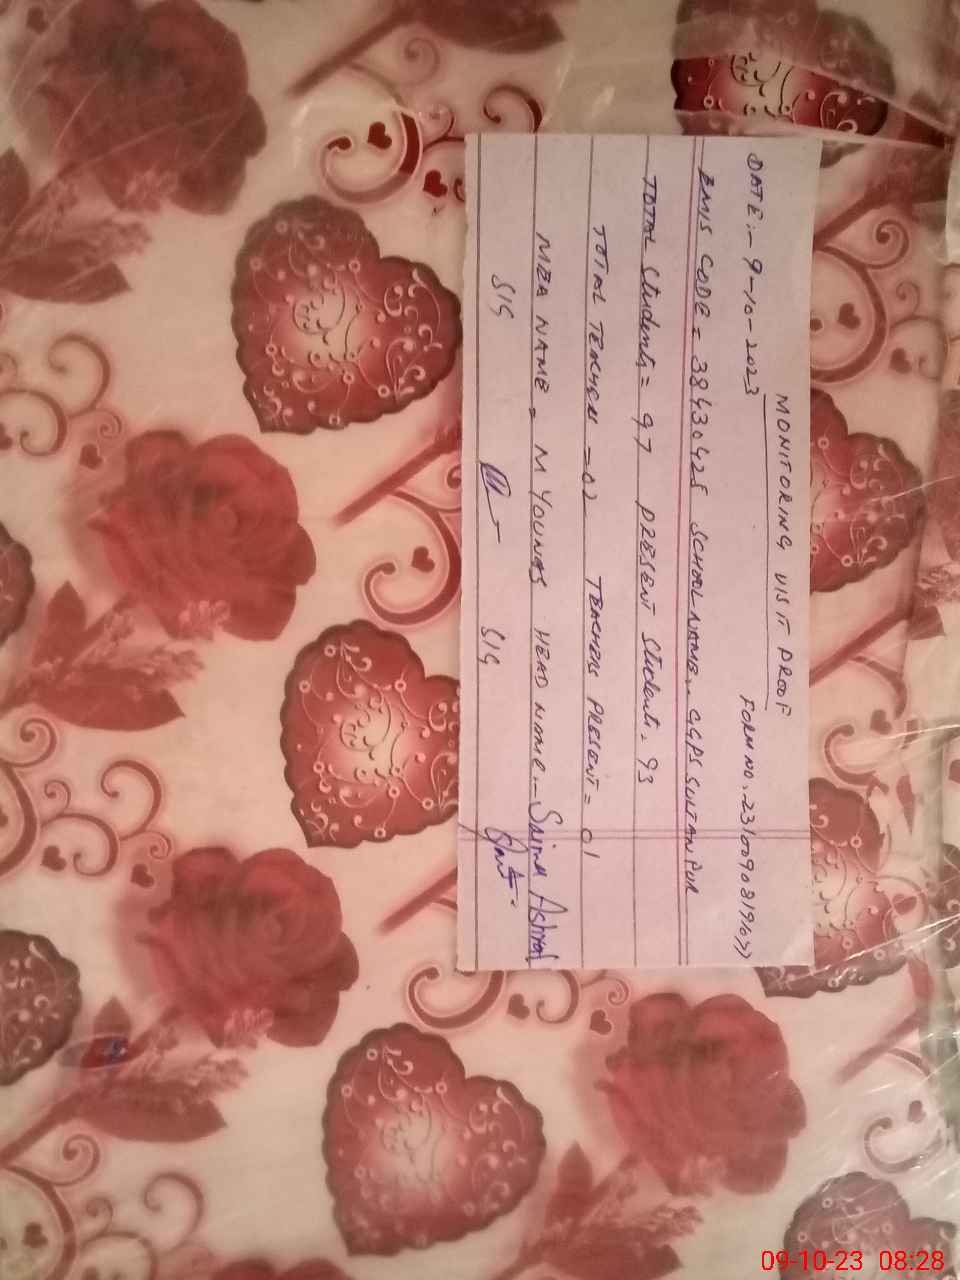 MONITORING VISIT PROOF
DATE:- 9-10-2023 FORM NO.
EMIS CODE = 38430425 SCHOOL NAME:- GGPS SULTANPUR
TOTAL Students = 97 PRESENT Students. 93
TOTAL TEACHER = 02 TEACHERS PRESENT = 01
MEA NAME = M YOUNAS HEAD NAME:- Saima Ashraf
SIG SIG
09-10-23 08:28